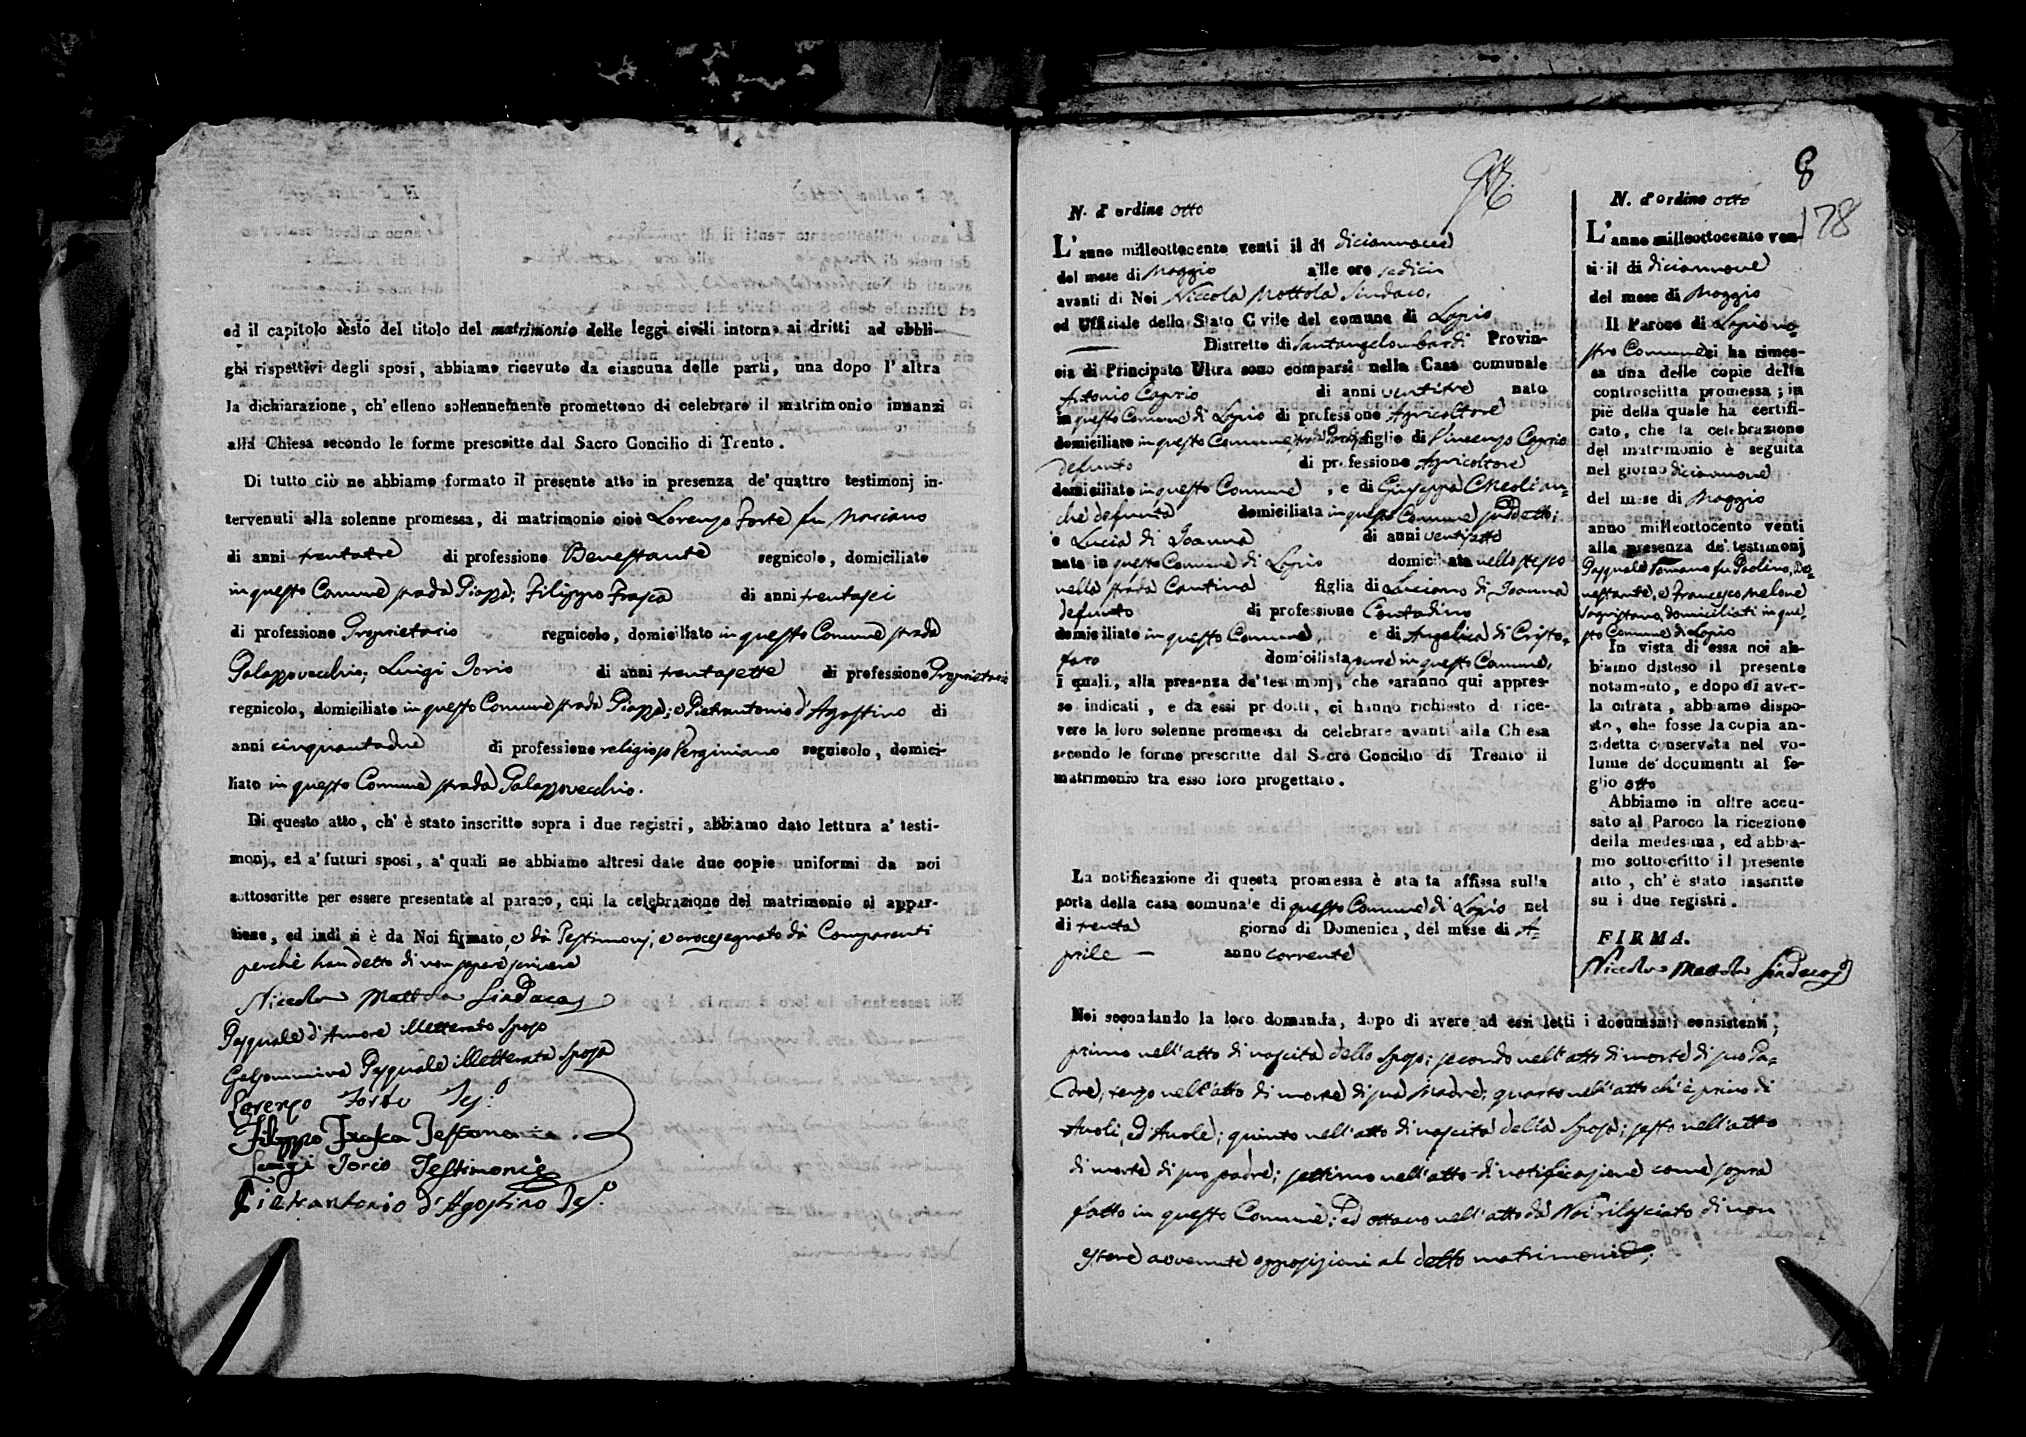 ed il capitolo sesto del titolo del matrimonio delle leggi civili intorno ai dritti ad obbli-
ghi rispettivi degli sposi, abbiamo ricevuto da ciascuna delle parti, una dopo l'altra
la dichiarazione, ch'elleno sollennemente promettono di celebrare il matrimonio innanzi
alla Chiesa secondo le forme prescritte dal Sacro Concilio di Trento.
Di tutto ciò ne abbiamo formato il presente atto in presenza de' quattro testimonj in-
tervenuti alla solenne promessa, di matrimonio cioè Lorenzo Forte fu Marciano
di anni trentatre di professione Benestante regnicolo, domiciliato
in questo Comune strada Piazza; Filippo Frasca di anni trentasei
di professione Proprietario regnicolo, domiciliato in questo Comune strada
Palazzovecchio; Luigi Iorio di anni trentasette di professione Proprietario
regnicolo, domiciliato in questo Comune strada Piazza; e Pietrantonio d'Agostino di
anni cinquantadue di professione religioso Verginiano regnicolo, domici-
liato in questo Comune strada Palazzovecchio.
Di questo atto, ch'è stato inscritto sopra i due registri, abbiamo dato lettura a' testi-
monj, ed a' futuri sposi, a' quali ne abbiamo altresì date due copie uniformi da noi
sottoscritte per essere presentate al paroco, cui la celebrazione del matrimonio si appar-
tiene, ed indi si è da Noi firmato, e da Testimonj, e crocesegnato da Comparenti
perchè han detto di non sapere scrivere
Niccola Mottola Sindaco
Pasquale d'Amore illetterato Sposo
Gelsomina Pasquale illetterata Sposa
Lorenzo Forte Tes.º
Filippo Frasca Testimonio
Luigi Iorio Testimonio
Pietrantonio d'Agostino Tes.º
8
178
N. d'ordine otto
L'anno milleottocento venti il di diciannove
del mese di Maggio alle ore sedici
avanti di Noi Niccola Mottola Sindaco,
ed Uffiziale dello Stato Civile del comune di Lapio
Distretto di Santangelolombardi Provin-
cia di Principato Ultra sono comparsi nella Casa comunale
Antonio Caprio di anni ventitre nato
in questo Comune di Lapio di professione Agricoltore
domiciliato in questo Comune figlio di Vincenzo Caprio
defunto di professione Agricoltore
domiciliato in questo Comune, e di Giuseppa Cheoli an-
che defunta domiciliata in questo Comune suddetto;
e Lucia di Ioanna di anni ventisette
nata in questo Comune di Lapio domiciliata nello stesso
nella strada Cantina figlia di Luciano di Ioanna
defunto di professione Contadino
domiciliato in questo Comune, e di Angelica di Cristo-
faro domiciliata pure in questo Comune,
i quali, alla presenza de' testimonj, che saranno qui appres-
so indicati, e da essi prodotti, ci hanno richiesto di rice-
vere la loro solenne promessa di celebrare avanti alla Chiesa
secondo le forme prescritte dal Sacro Concilio di Trento il
matrimonio tra esso loro progettato.
La notificazione di questa promessa è stata affissa sulla
porta della casa comunale di questo Comune di Lapio nel
di trenta giorno di Domenica, del mese di A-
prile anno corrente
Noi secondando la loro domanda, dopo di avere ad essi letti i documenti consistenti,
primo nell'atto di nascita dello Sposo; secondo nell'atto di morte di suo Pa-
dre; terzo nell'atto di morte di sua Madre; quarto nell'atto ch'è privo di
Avoli, ed Avole; quinto nell'atto di nascita della Sposa; sesto nell'atto
di morte di suo padre; settimo nell'atto di notificazione come sopra
fatto in questo Comune; ed ottavo nell'atto da Noi rilasciato di non
essere avvenute opposizioni al detto matrimonio;
N. d'ordine otto
L'anno milleottocento ven-
ti il di diciannove
del mese di Maggio
Il Paroco di Lapio no-
stro Comune ci ha rimes-
sa una delle copie della
controscritta promessa; in
piè della quale ha certifi-
cato, che la celebrazione
del matrimonio è seguita
nel giorno diciannove
del mese di Maggio
anno milleottocento venti
alla presenza de' testimonj
Pasquale Romano fu Paolino, Be-
nestante, e Francesco Melone
Sagristano, domiciliati in que-
sto Comune di Lapio
In vista di essa noi ab-
biamo disteso il presente
notamento, e dopo di aver-
la citrata, abbiamo dispo-
sto, che fosse la copia an-
zidetta conservata nel vo-
lume de' documenti al fo-
glio otto
Abbiamo in oltre accu-
sato al Paroco la ricezione
della medesima, ed abbia-
mo sottoscritto il presente
atto, ch'è stato inscritto
su i due registri.
FIRMA.
Niccola Mottola Sindaco